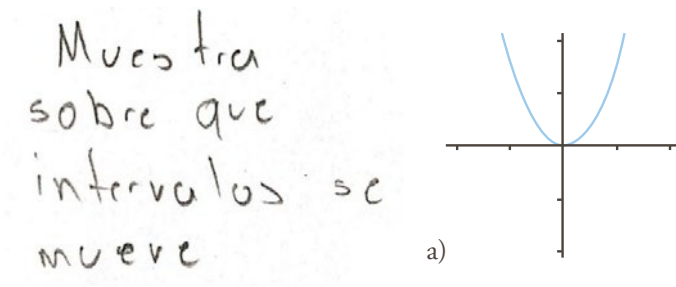 Muestra
sobre que
intervalos se
mueve
a)